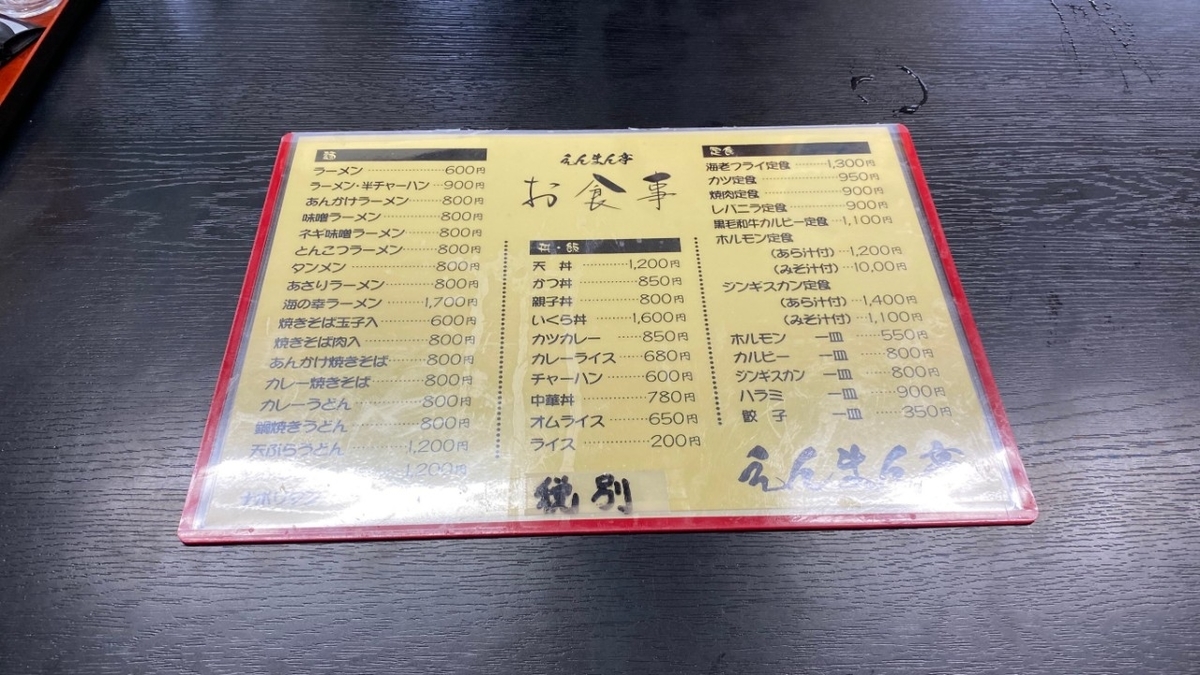 麺
ラーメン 600円
ラーメン・半チャーハン 900円
あんかけラーメン 800円
味噌ラーメン 800円
ネギ味噌ラーメン 800円
とんこつラーメン 800円
タンメン 800円
あさりラーメン 800円
海の幸ラーメン 1,700円
焼きそば玉子入 600円
焼きそば肉入 800円
あんかけ焼きそば 800円
カレー焼きそば 800円
カレーうどん 800円
鍋焼きうどん 800円
天ぷらうどん 1,200円
1,200円
ナポリタン
えんまん亭
お食事
丼・飯
天丼 1,200円
かつ丼 850円
親子丼 800円
いくら丼 1,600円
カツカレー 850円
カレーライス 680円
チャーハン 600円
中華丼 780円
オムライス 650円
ライス 200円
税別
定食
海老フライ定食 1,300円
カツ定食 950円
焼肉定食 900円
レバニラ定食 900円
黒毛和牛カルビー定食 1,100円
ホルモン定食
(あら汁付) 1,200円
(みそ汁付) 10,00円
ジンギスカン定食
(あら汁付) 1,400円
(みそ汁付) 1,100円
ホルモン 一皿 550円
カルビー 一皿 800円
ジンギスカン 一皿 800円
ハラミ 一皿 900円
餃子 一皿 350円
えんまん亭